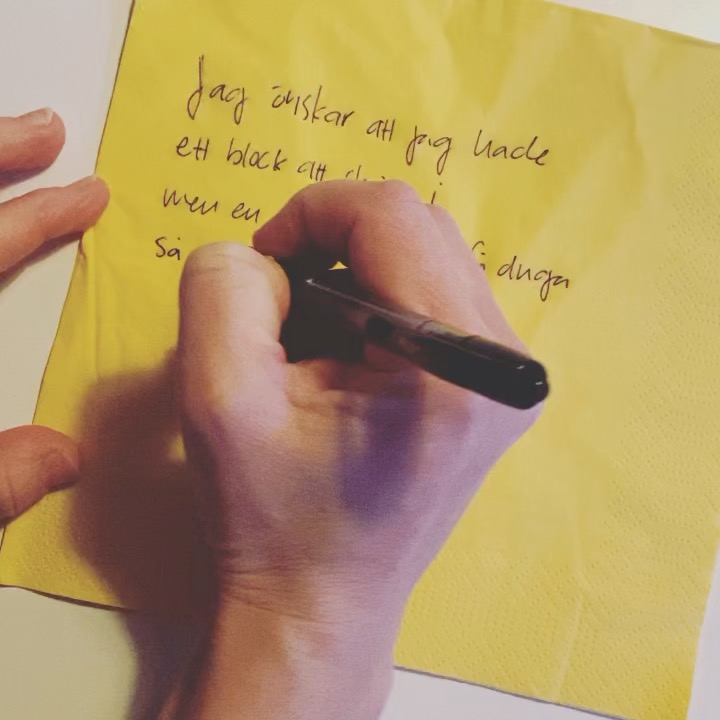 Jag önskar att jag hade
ett block att i
men en
så duga